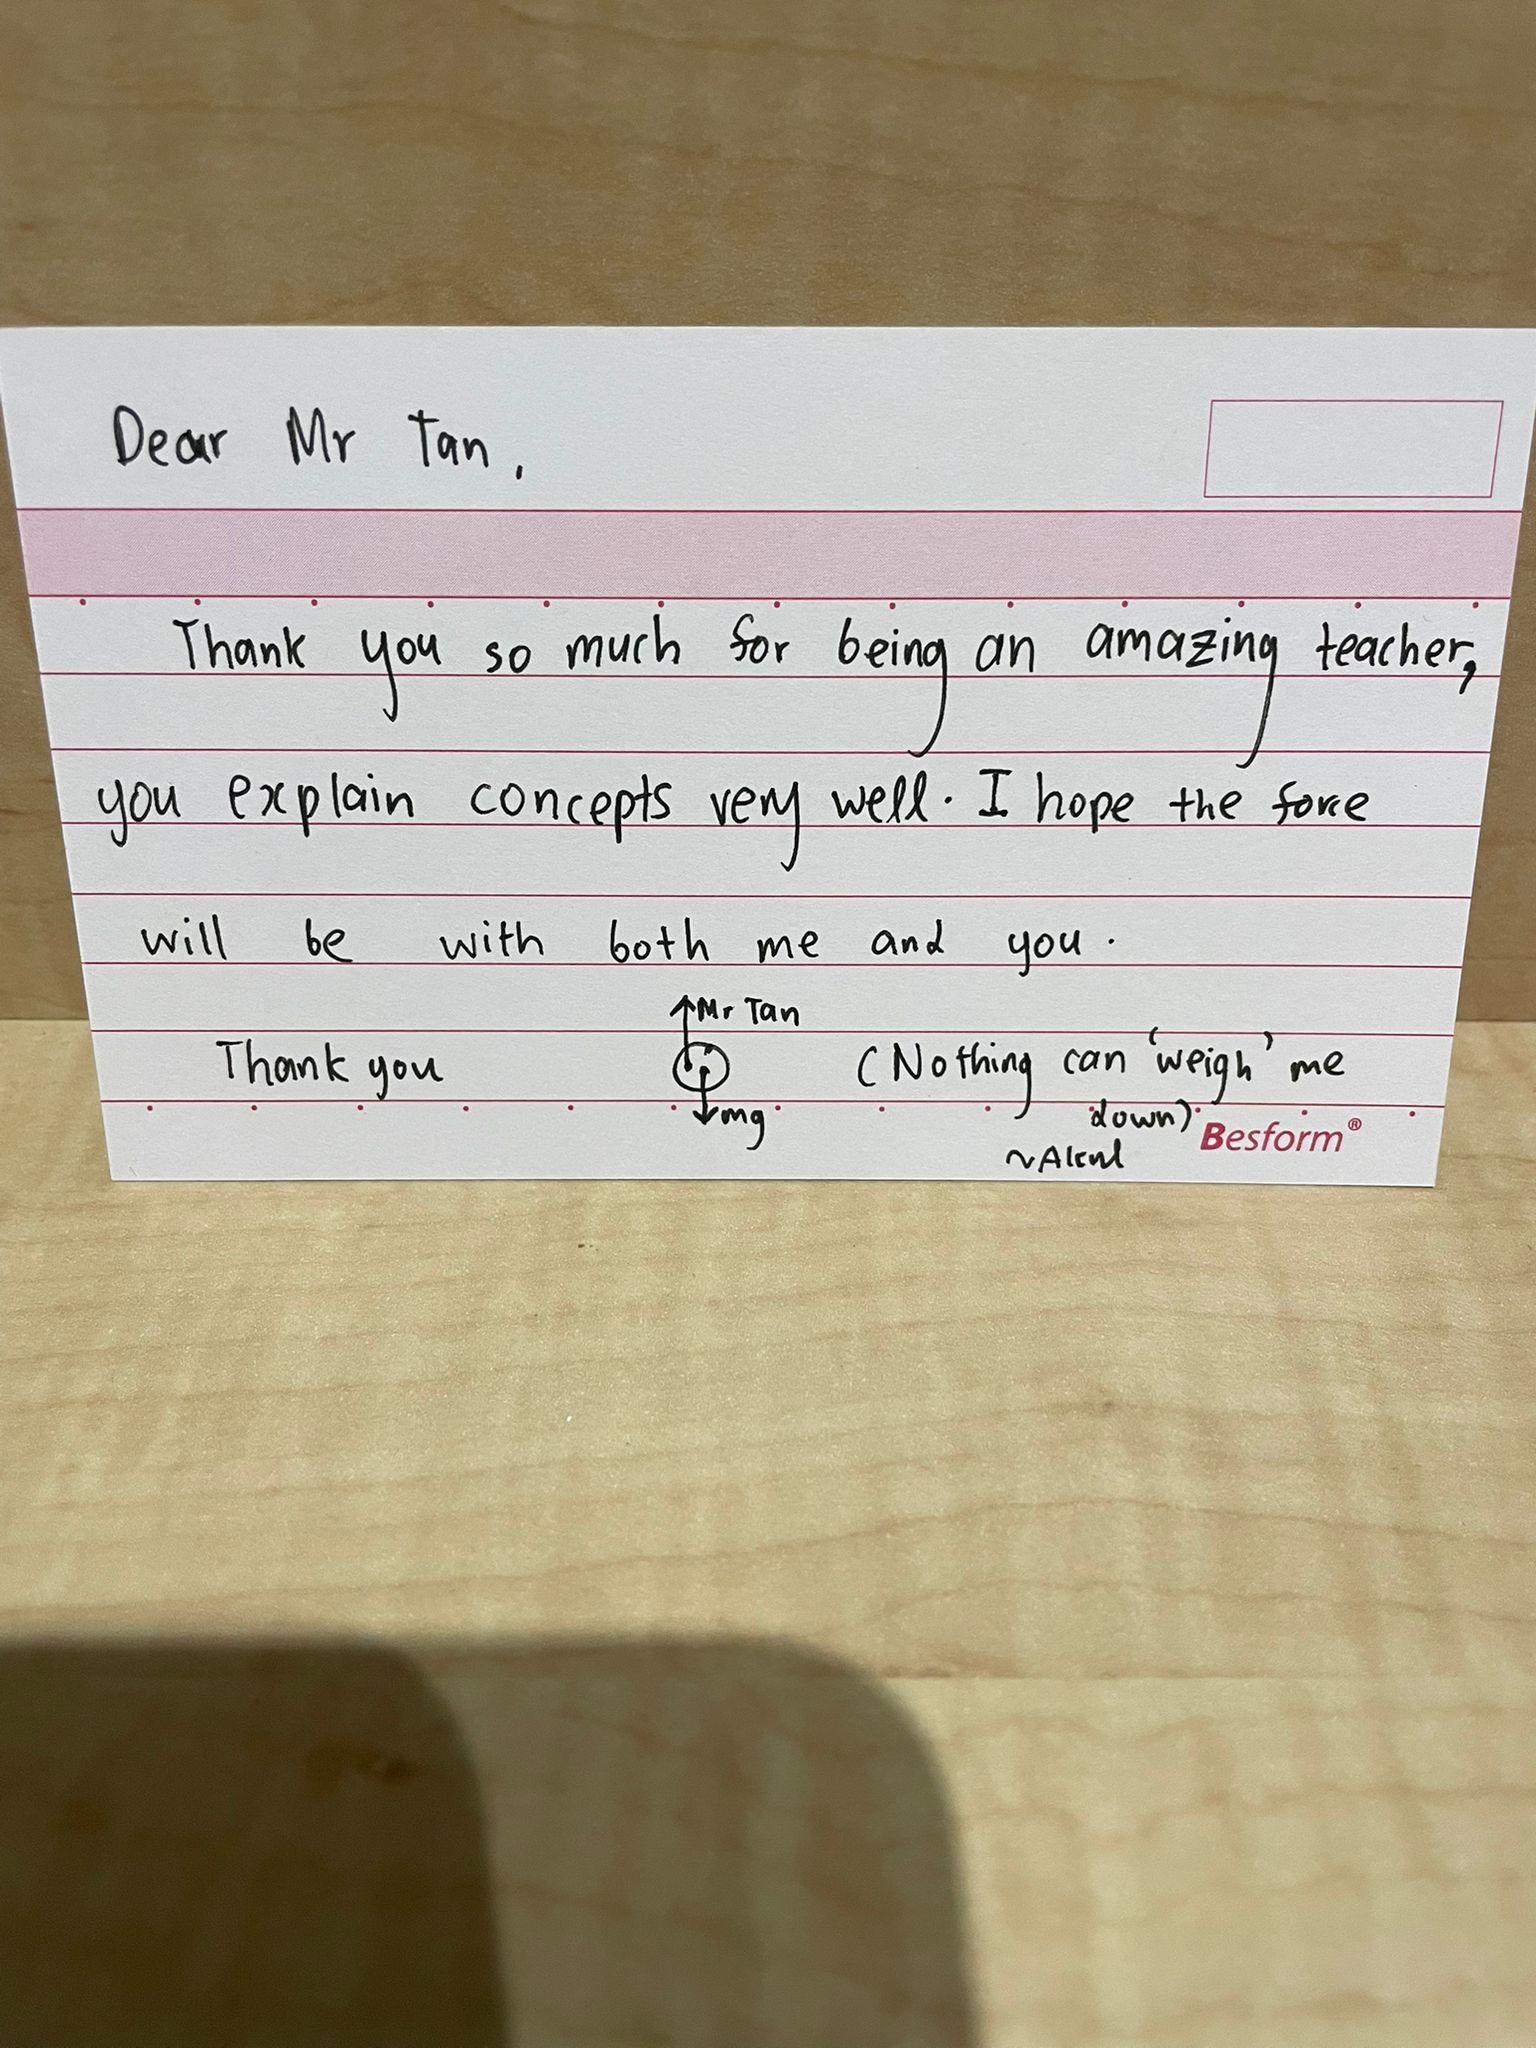 Dear Mr Tan,
Thank you so much for being an amazing teacher,
you explain concepts very well. I hope the force
will be with both me and you.
Mr Tan
Thank you
mg
(Nothing can 'weigh' me
down)
Besform®